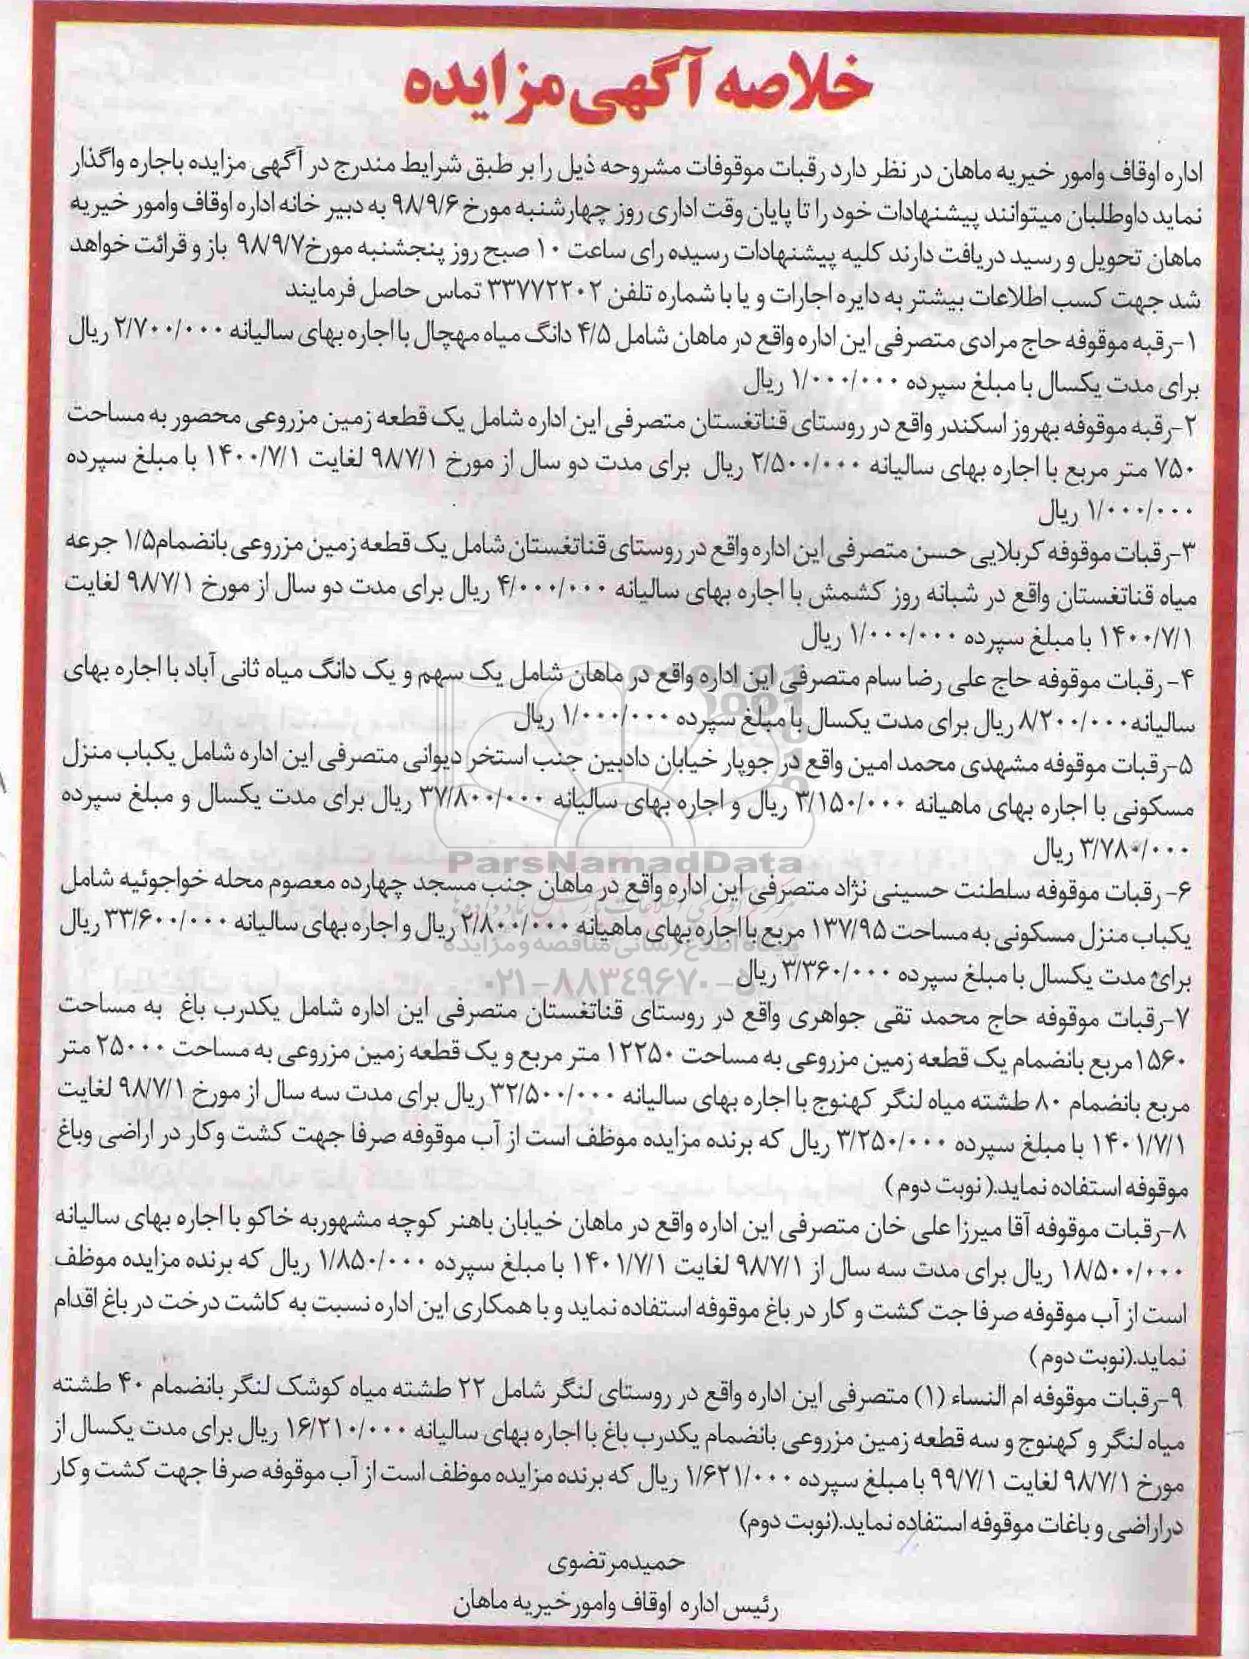 خلاصه آگهی مزایده
اداره اوقاف وامور خیریه ماهان در نظر دارد رقبات موقوفات مشروحه ذیل را بر طبق شرایط مندرج در آگهی مزایده باجاره واگذار
نماید داوطلبان میتوانند پیشنهادات خود را تا پایان وقت اداری روز چهارشنبه مورخ ۹۸/۹/۶ به دبیر خانه اداره اوقاف وامور خیریه
ماهان تحویل و رسید دریافت دارند کلیه پیشنهادات رسیده رای ساعت ۱۰ صبح روز پنجشنبه مورخ ۹۸/۹/۷ باز و قرائت خواهد
شد جهت کسب اطلاعات بیشتر به دایره اجارات و یا با شماره تلفن ۳۳۷۷۲۲۰۲ تماس حاصل فرمایند
۱-رقبه موقوفه حاج مرادی متصرفی این اداره واقع در ماهان شامل ۴/۵ دانگ میاه مهچال با اجاره بهای سالیانه ۲/۷۰۰/۰۰۰ ریال
برای مدت یکسال با مبلغ سپرده ۱/۰۰۰/۰۰۰ ریال
۲-رقبه موقوفه بهروز اسکندر واقع در روستای قناتغستان متصرفی این اداره شامل یک قطعه زمین مزروعی محصور به مساحت
۷۵۰ متر مربع با اجاره بهای سالیانه ۲/۵۰۰/۰۰۰ ریال برای مدت دو سال از مورخ ۹۸/۷/۱ لغایت ۱۴۰۰/۷/۱ با مبلغ سپرده
۱/۰۰۰/۰۰۰ ریال
۳-رقبات موقوفه کربلایی حسن متصرفی این اداره واقع در روستای قناتغستان شامل یک قطعه زمین مزروعی بانضمام۱/۵ جرعه
میاه قناتغستان واقع در شبانه روز کشمش با اجاره بهای سالیانه ۴/۰۰۰/۰۰۰ ریال برای مدت دو سال از مورخ ۹۸/۷/۱ لغایت
۱۴۰۰/۷/۱ با مبلغ سپرده ۱/۰۰۰/۰۰۰ ریال
۴- رقبات موقوفه حاج علی رضا سام متصرفی این اداره واقع در ماهان شامل یک سهم و یک دانگ میاه ثانی آباد با اجاره بهای
سالیانه۸/۲۰۰/۰۰۰ ریال برای مدت یکسال با مبلغ سپرده ۱/۰۰۰/۰۰۰ ریال
۵-رقبات موقوفه مشهدی محمد امین واقع در جوپار خیابان دادبین جنب استخر دیوانی متصرفی این اداره شامل یکباب منزل
مسکونی با اجاره بهای ماهیانه ۳/۱۵۰/۰۰۰ ریال و اجاره بهای سالیانه ۳۷/۸۰۰/۰۰۰ ریال برای مدت یکسال و مبلغ سپرده
۳/۷۸۰/۰۰۰ ریال
ParsNamadData
۶- رقبات موقوفه سلطنت حسینی نژاد متصرفی این اداره واقع در ماهان جنب مسجد چهارده معصوم محله خواجوئیه شامل
یکباب منزل مسکونی به مساحت ۱۳۷/۹۵ مربع با اجاره بهای ماهیانه ۲/۸۰۰/۰۰۰ ریال و اجاره بهای سالیانه ۳۳/۶۰۰/۰۰۰ ریال
پایگاه اطلاع رسانی مناقصه و مزایده
برای مدت یکسال با مبلغ سپرده ۳/۳۶۰/۰۰۰ ریال
۰۲۱-۸۸۳۴۹۶۷۰-۵
۷-رقبات موقوفه حاج محمد تقی جواهری واقع در روستای قناتغستان متصرفی این اداره شامل یکدرب باغ به مساحت
۱۵۶۰مربع بانضمام یک قطعه زمین مزروعی به مساحت ۱۲۲۵۰ متر مربع و یک قطعه زمین مزروعی به مساحت ۲۵۰۰۰ متر
مربع بانضمام ۸۰ طشته میاه لنگر کهنوج با اجاره بهای سالیانه ۳۲/۵۰۰/۰۰۰ ریال برای مدت سه سال از مورخ ۹۸/۷/۱ لغایت
۱۴۰۱/۷/۱ با مبلغ سپرده ۳/۲۵۰/۰۰۰ ریال که برنده مزایده موظف است از آب موقوفه صرفا جهت کشت وکار در اراضی وباغ
موقوفه استفاده نماید.( نوبت دوم )
۸-رقبات موقوفه آقا میرزا علی خان متصرفی این اداره واقع در ماهان خیابان باهنر کوچه مشهوربه خاکو با اجاره بهای سالیانه
۱۸/۵۰۰/۰۰۰ ریال برای مدت سه سال از ۹۸/۷/۱ لغایت ۱۴۰۱/۷/۱ با مبلغ سپرده ۱/۸۵۰/۰۰۰ ریال که برنده مزایده موظف
است از آب موقوفه صرفا جت کشت و کار در باغ موقوفه استفاده نماید و با همکاری این اداره نسبت به کاشت درخت در باغ اقدام
نماید.(نوبت دوم )
۹-رقبات موقوفه ام النساء (۱) متصرفی این اداره واقع در روستای لنگر شامل ۲۲ طشته میاه کوشک لنگر بانضمام ۴۰ طشته
میاه لنگر و کهنوج و سه قطعه زمین مزروعی بانضمام یکدرب باغ با اجاره بهای سالیانه ۱۶/۲۱۰/۰۰۰ ریال برای مدت یکسال از
مورخ ۹۸/۷/۱ لغایت ۹۹/۷/۱ با مبلغ سپرده ۱/۶۲۱/۰۰۰ ریال که برنده مزایده موظف است از آب موقوفه صرفا جهت کشت وکار
دراراضی و باغات موقوفه استفاده نماید.(نوبت دوم)
حمیدمرتضوی
رئیس اداره اوقاف وامورخیریه ماهان